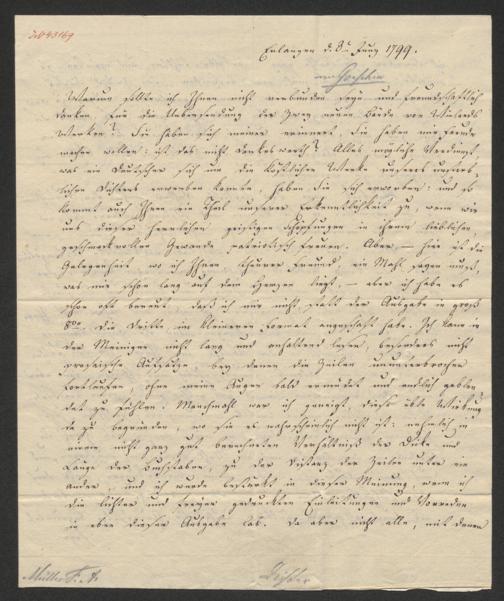 Erlangen d. 8t Juny 1799.
Warum sollte ich Ihnen nicht verbunden seyn und freundschaftlich
danken, für die Uebersendung der zwey neuen Bände von Wielands
Werken? Sie haben sich meiner erinnert, Sie haben mir Freude
machen wollen: ist das nicht dankenswerth? Alles mögliche Verdienst
was ein Deutscher sich um die köstlichen Werke unsers unsterb-
lichen Dichters erwerben konnte, haben Sie sich erworben: und so
kommt auch Ihnen ein Theil unserer Erkenntlichkeit zu, wenn wir
uns dieser herrlichen, geistigen Schöpfungen in ihrem lieblichen
geschmackvollen Gewande patriotisch freuen. Aber, — hier ist die
Gelegenheit wo ich Ihnen, theurer Freund, ein Mahl sagen muß,
was mir schon lang auf dem Herzen liegt, — aber ich habe es
schon oft bereut, daß ich mir nicht, statt der Ausgabe in groß
8vo. die dritte im kleineren Format angeschaft habe. Ich kann in
der Meinigen nicht lang und anhaltend lesen, besonders nicht
prosaische Aufsätze, bey denen die Zeilen ununterbrochen
fortlaufen, ohne meine Augen bald ermüdet und endlich geblen
det zu fühlen. Manchmahl war ich geneigt, diese üble Wirkung
da zu begründen, wo sie es wahrscheinlich nicht ist: nehmlich in
einem nicht ganz gut berechneten Verhältniß der Dicke und
Länge der Buchstaben, zu der Distanz der Zeilen unter ein
ander, und ich wurde bestärkt in dieser Meinung, wenn ich
die lichter und freyer gedruckten Einleitungen und Vorreden
in eben dieser Ausgabe las. Da aber nicht alle, mit denen
Müller F. A.
Dichter